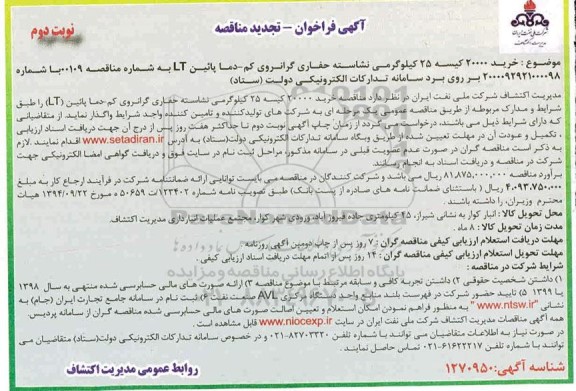 آگهی فراخوان – تجدید مناقصه
نوبت دوم
موضوع : خرید ۲۰۰۰۰ کیسه ۲۵ کیلوگرمی نشاسته حفاری گرانروی کم-دما پائین LT به شماره مناقصه ۰۰۱۰۹-با شماره
۲۰۰۰۰۹۲۹۲۱۰۰۰۰۹۸ بر روی برد سامانه تدارکات الکترونیکی دولت (ستاد)
مدیریت اکتشاف شرکت ملی نفت ایران در نظر دارد مناقصه خرید ۲۰۰۰۰ کیسه ۲۵ کیلوگرمی نشاسته حفاری گرانروی کم-دما پائین (LT) را طبق
شرایط و مدارک مربوطه از طریق مناقصه عمومی یک مرحله ای به شرکت های تولیدکننده و تامین کننده واجد شرایط واگذار نماید. از متقاضیانی
که دارای شرایط ذیل می باشند، درخواست می گردد از زمان چاپ آگهی نوبت دوم تا حداکثر هفت روز پس از درج آن جهت دریافت اسناد ارزیابی
، تکمیل و عودت آن در مهلت تعیین شده از طریق وبگاه سامانه تدارکات الکترونیکی دولت(ستاد) به آدرس www.setadiran.ir اقدام نمایند. لازم
به ذکر است مناقصه گران در صورت عدم عضویت قبلی در سامانه مذکور، مراحل ثبت نام در سایت فوق و دریافت گواهی امضا الکترونیکی جهت
شرکت در مناقصه و دریافت اسناد به انجام رسانند.
برآورد مناقصه ۸۱،۸۷۵،۰۰۰،۰۰۰ ریال می باشد و شرکت کنندگان در مناقصه می بایست توانایی ارائه ضمانتنامه شرکت در فرآیند ارجاع کار به مبلغ
۴،۰۹۳،۷۵۰،۰۰۰ ریال ( باستثنای ضمانت نامه های صادره از پست بانک) طبق تصویب نامه شماره ۱۲۳۴۰۲/ت ۵۰۶۵۹ ه مورخ ۱۳۹۴/۰۹/۲۲ هیات
محترم وزیران، را داشته باشند.
محل تحویل کالا : انبار کوار به نشانی شیراز، ۴۵ کیلومتری جاده فیروزآباد، ورودی شهر کوار، مجتمع عملیات انبارداری مدیریت اکتشاف.
مدت زمان تحویل کالا : ۸ ماه .
مهلت دریافت استعلام ارزیابی کیفی مناقصه گران : ۷ روز پس از چاپ دومین آگهی روزنامه
مهلت تحویل استعلام ارزیابی کیفی مناقصه گران : ۱۴ روز پس از اتمام مهلت دریافت اسناد ارزیابی کیفی .
شرایط شرکت در مناقصه :
۱) داشتن شخصیت حقوقی ۲) داشتن تجربه کافی و سابقه مرتبط با موضوع مناقصه ۳) ارائه صورت های مالی حسابرسی شده منتهی به سال ۱۳۹۸
یا ۱۳۹۹ ۵) تایید حضور شرکت در فهرست بلند منابع واحد AVL نفت ۶) ثبت نام در سامانه جامع تجارت ایران (جام) به
نشانی "www.ntsw.ir" به منظور فراهم نمودن امکان استعلام و تعیین اصالت صورت های مالی حسابرسی شده مناقصه گران از سامانه پردیس.
همه آگهی مناقصات مدیریت اکتشاف شرکت ملی نفت ایران در سایت www.niocexp.ir قابل مشاهده است.
در صورت نیاز به اطلاعات متقاضیان می توانند با شماره تلفن ۸۲۷۰۳۳۲۰-۰۲۱ و در خصوص سامانه تدارکات الکترونیکی دولت(ستاد) متقاضیان می
توانند با شماره تلفن ۶۱۶۲۲۲۱۷-۰۲۱ تماس حاصل نمایند.
شناسه آگهی: ۱۲۷۰۹۵۰
روابط عمومی مدیریت اکتشاف